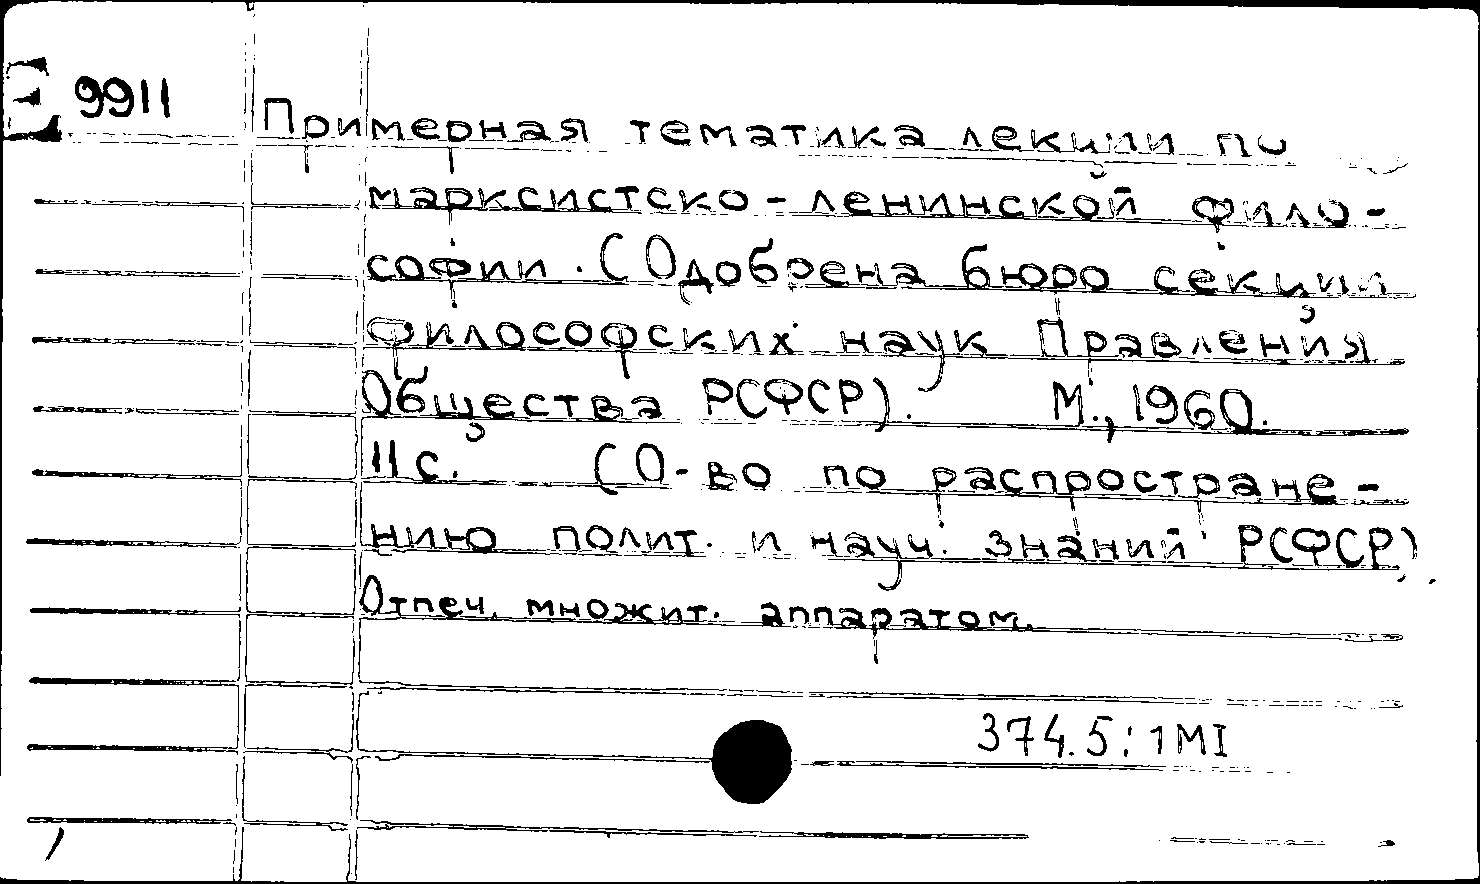 E 9911
Примерная тематика лекции по
марксистско-ленинской фило-
софии. (Одобрена бюро секции
философских наук Правления
Общества РСФСР). М., 1960.
11 с. (О-во по распростране-
нию полит. и науч. знаний РСФСР).
Отпеч. множит. аппаратом.
374.5:1МI